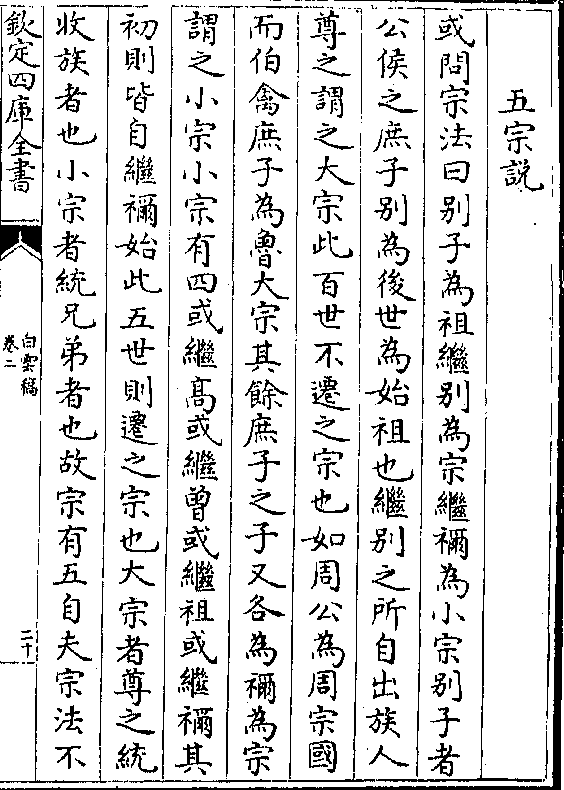 五宗說
或問宗法曰别子為祖繼别為宗繼禰為小宗别子者
公侯之庶子别為後世為始祖也繼别之所自出族人
尊之謂之大宗此百世不遷之宗也如周公為周宗國
而伯禽庶子為魯大宗其餘庶子之子又各為禰為宗
謂之小宗小宗有四或繼髙或繼曾或繼祖或繼禰其
初則皆自繼禰始此五世則遷之宗也大宗者尊之統
收族者也小宗者統兄弟者也故宗有五自夫宗法不
欽定四庫全書
白雲稿
卷二
二十